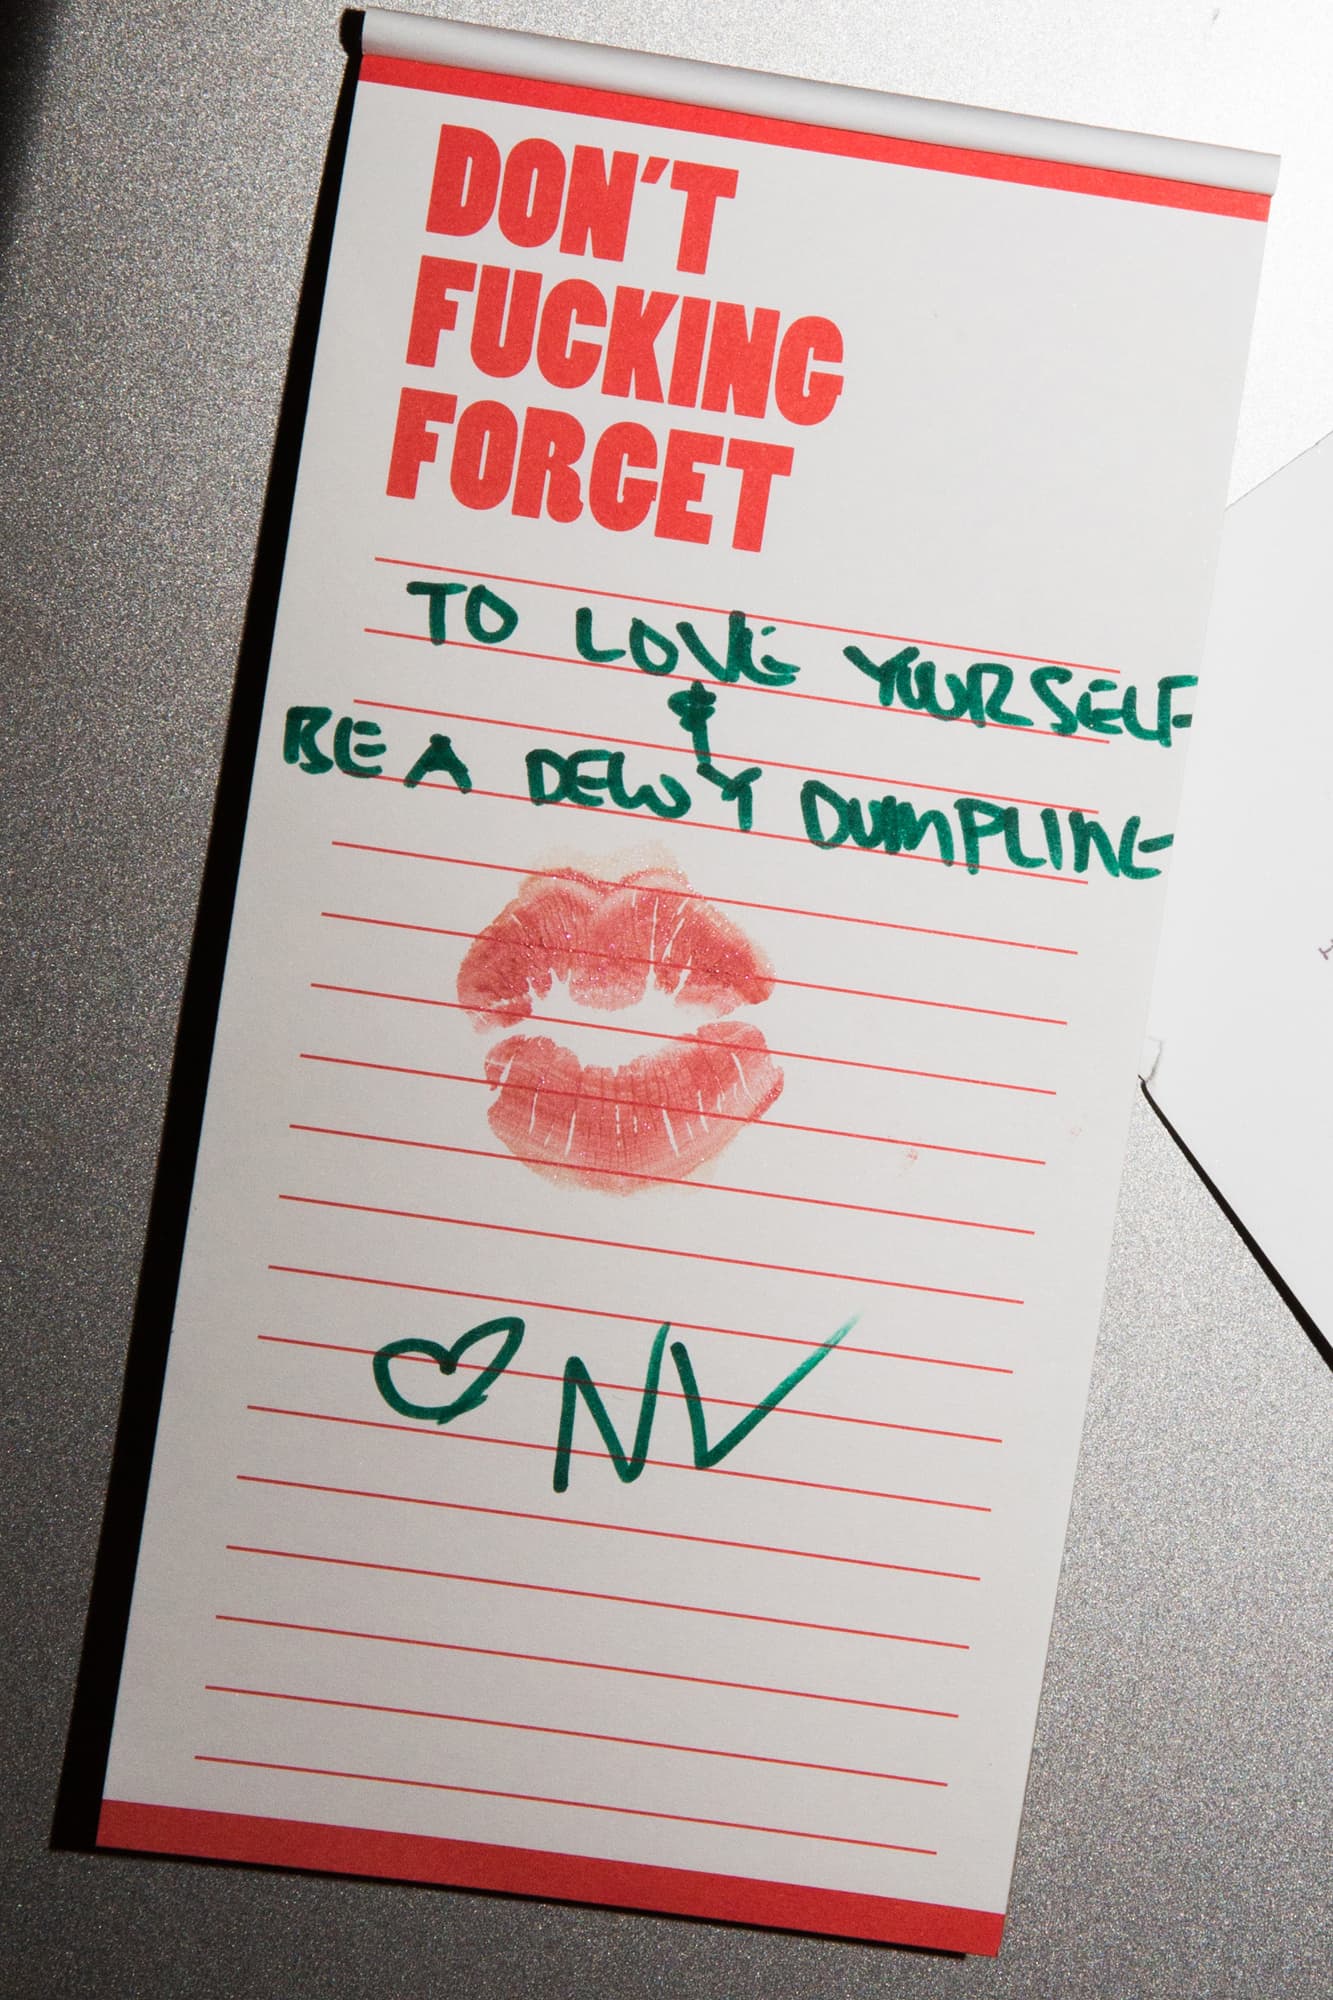 DON'T
FUCKING
FORGET
TO LOVE YOURSELF
&
BE A DEWY DUMPLING
♡ NV